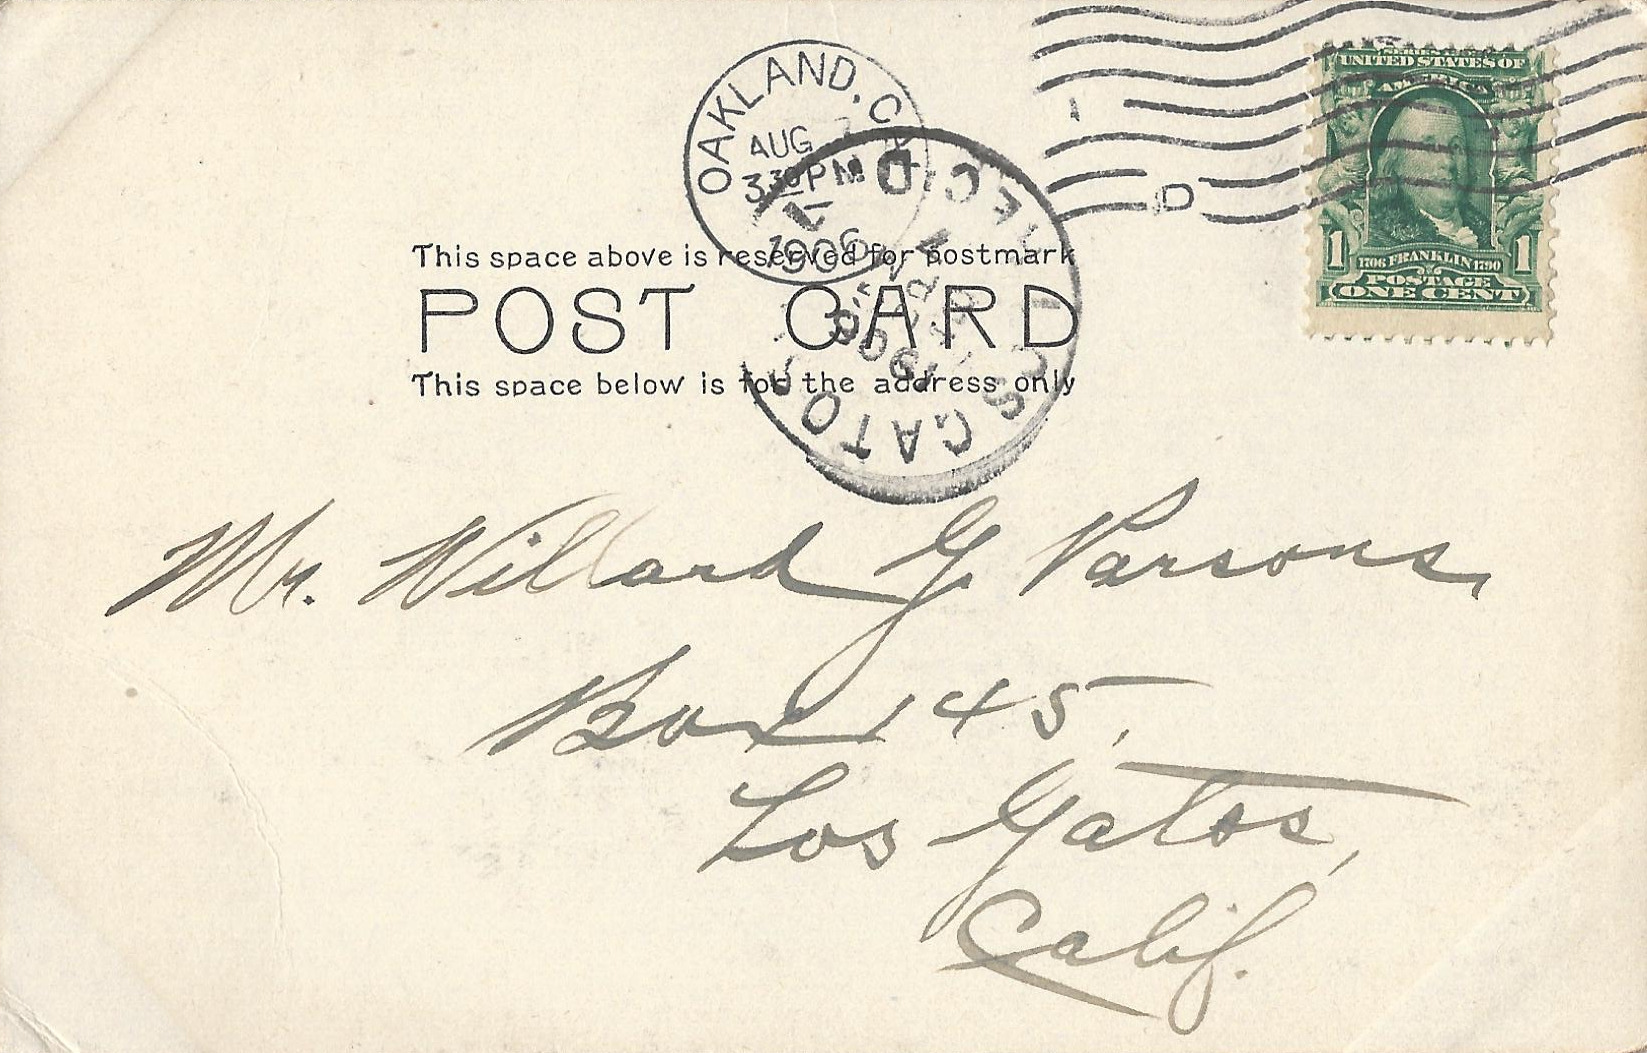 OAKLAND, CA
AUG 7
3 30 PM
1906
SERIES 1902
UNITED STATES OF
AMERICA
1 1706 FRANKLIN 1790 1
POSTAGE
ONE CENT
D
This space above is reserved for postmark
POST CARD
This space below is for the address only
LOS GATOS
REC'D
1906
Mr. Willard G. Parsons,
Box 145,
Los Gatos,
Calif.